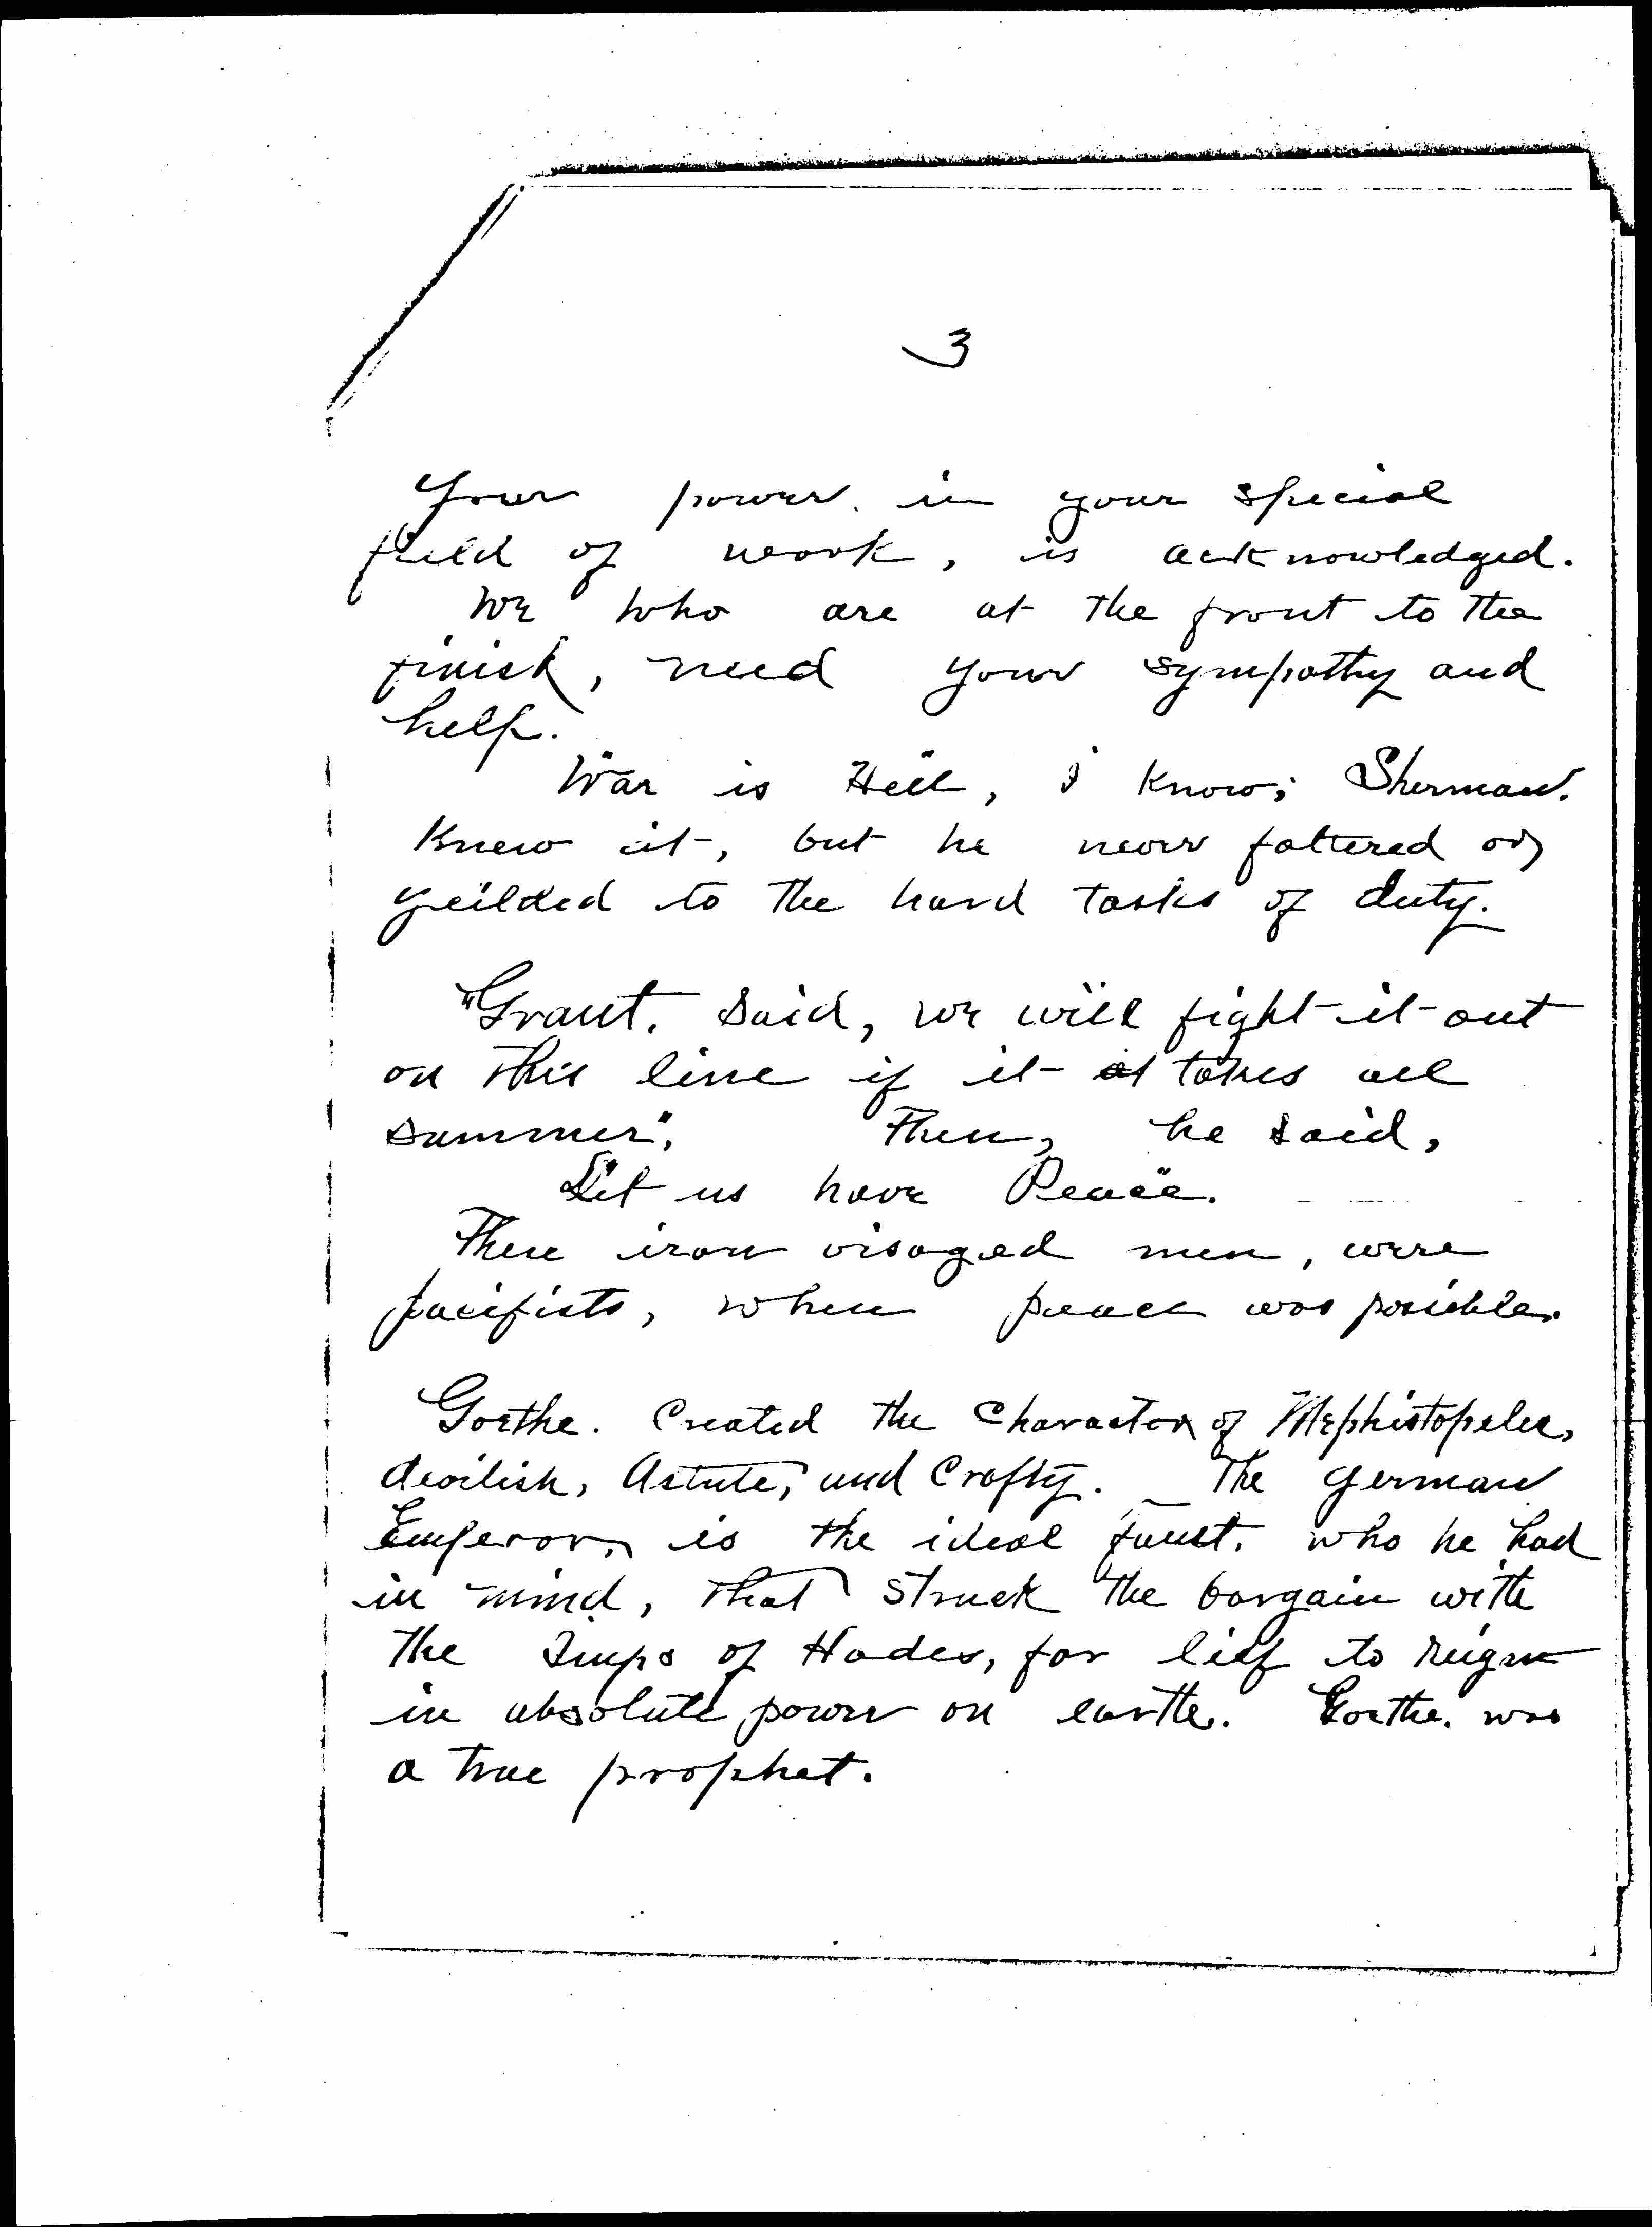 3
Your power. in your special
field of work, is acknowledged.
We who are at the front to the
finish, need your sympathy and
help.
"War is Hell", I know; Sherman.
Knew it, but he never faltered or
yeilded to the hard tasks of duty.
"Grant. said, we will fight it out
on this line if it takes all
summer". Then, he said,
"Let us have Peace".
These iron visaged men, were
pacifists, when peace was possible.
Goethe. Created the Character of Mephistopeles,
devilish, Astute, and Crafty. _ The german
Emperor, is the ideal faust. who he had
in mind, that struck the bargain with
the Imps of Hades, for lief to reign
in absolute power on earth. Goethe. was
a true prophet.